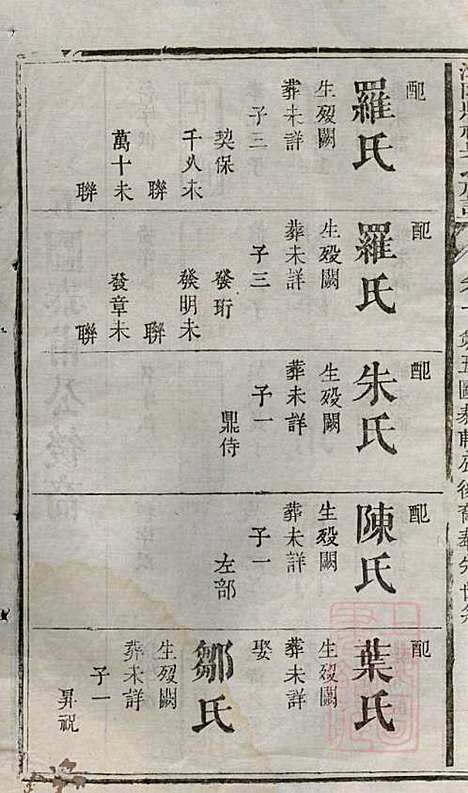 配
羅氏
生歿闕
葬未詳
子三
契保
千久未
聯
萬十未
聯
配
羅氏
生歿闕
葬未詳
子三
發珩
發明未
聯
發章未
聯
配
朱氏
生歿闕
葬未詳
子一
鼎侍
配
陳氏
生歿闕
葬未詳
子一
左部
配
葉氏
生歿闕
葬未詳
娶
鄒氏
生歿闕
葬未詳
子一
昇祝